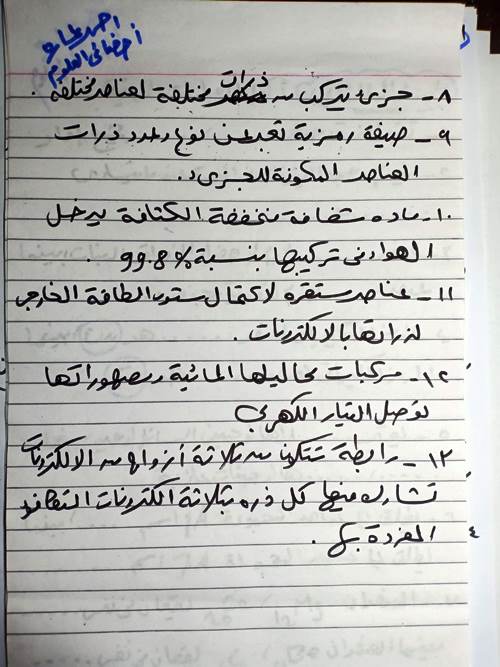 احمد
أخصائى العلوم
٨- جزئ يتركب من ذرات مختلفة لعناصر مختلفة
٩- صيغة رمزية تعبر عن نوع وعدد ذرات
العناصر المكونة للجزئ.
١٠- ماده شفافة منخفضة الكثافة يدخل
الهواء فى تركيبها بنسبة %99.8 .
١١- عناصر مستقره لاكتمال مستوى الطاقة الخارجى
لذراتها بالالكترونات .
١٢- مركبات محاليلها المائية ومصهوراتها
توصل التيار الكهربى
١٣- رابطة تتكون من ثلاثة أزواج من الالكترونات
تشارك فيها كل ذره بثلاثة الكترونات التكافؤ
المفردة بها .